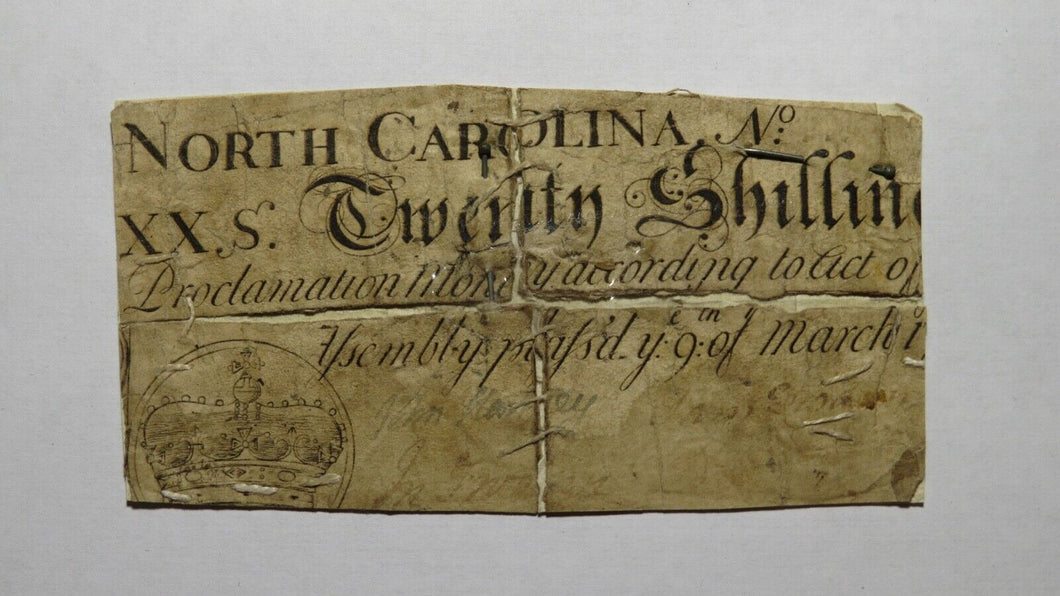 NORTH CAROLINA, No:
XX.S. Twenty Shilling
Proclamation Money according to Act of
Assembly pass'd ye. 9:th of March 17